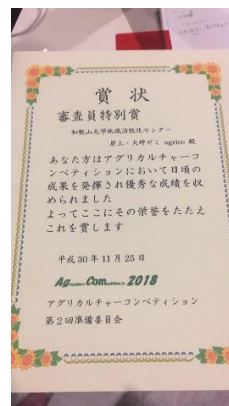 賞状
審査員特別賞
和歌山大学地域活性化センター
岸上・大坪ゼミ agrico 殿
あなた方はアグリカルチャーコ
ンペティションにおいて日頃の
成果を発揮され優秀な成績を収
められました
よってここにその栄誉をたたえ
これを賞します
平成30年11月25日
2018
アグリカルチャーコンペティション
第2回準備委員会